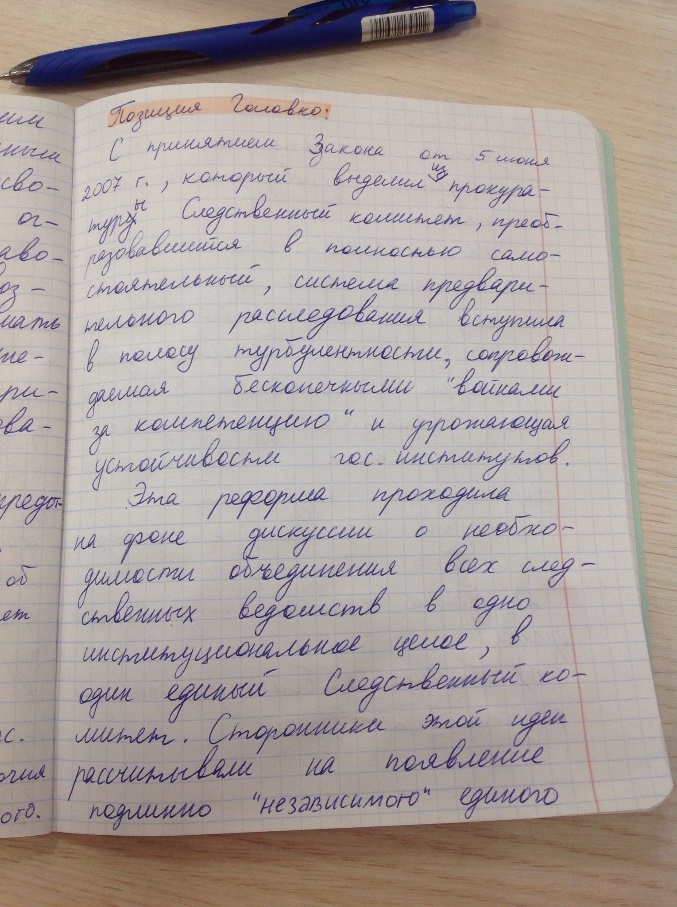 Позиция Головко:
С принятием Закона от 5 июня
2007 г., который выделил из прокура-
туры Следственный комитет, преоб-
разовавшийся в полностью само-
стоятельный, система предвари-
тельного расследования вступила
в полосу турбулентности, сопровож-
даемая бесконечными "войнами
за компетенцию" и угрожающая
устойчивости гос. институтов.
Эта реформа проходила
на фоне дискуссии о необхо-
димости объединения всех след-
ственных ведомств в одно
институциональное целое, в
один единый Следственный ко-
митет. Сторонники этой идеи
рассчитывали на появление
подлинно "независимого" единого